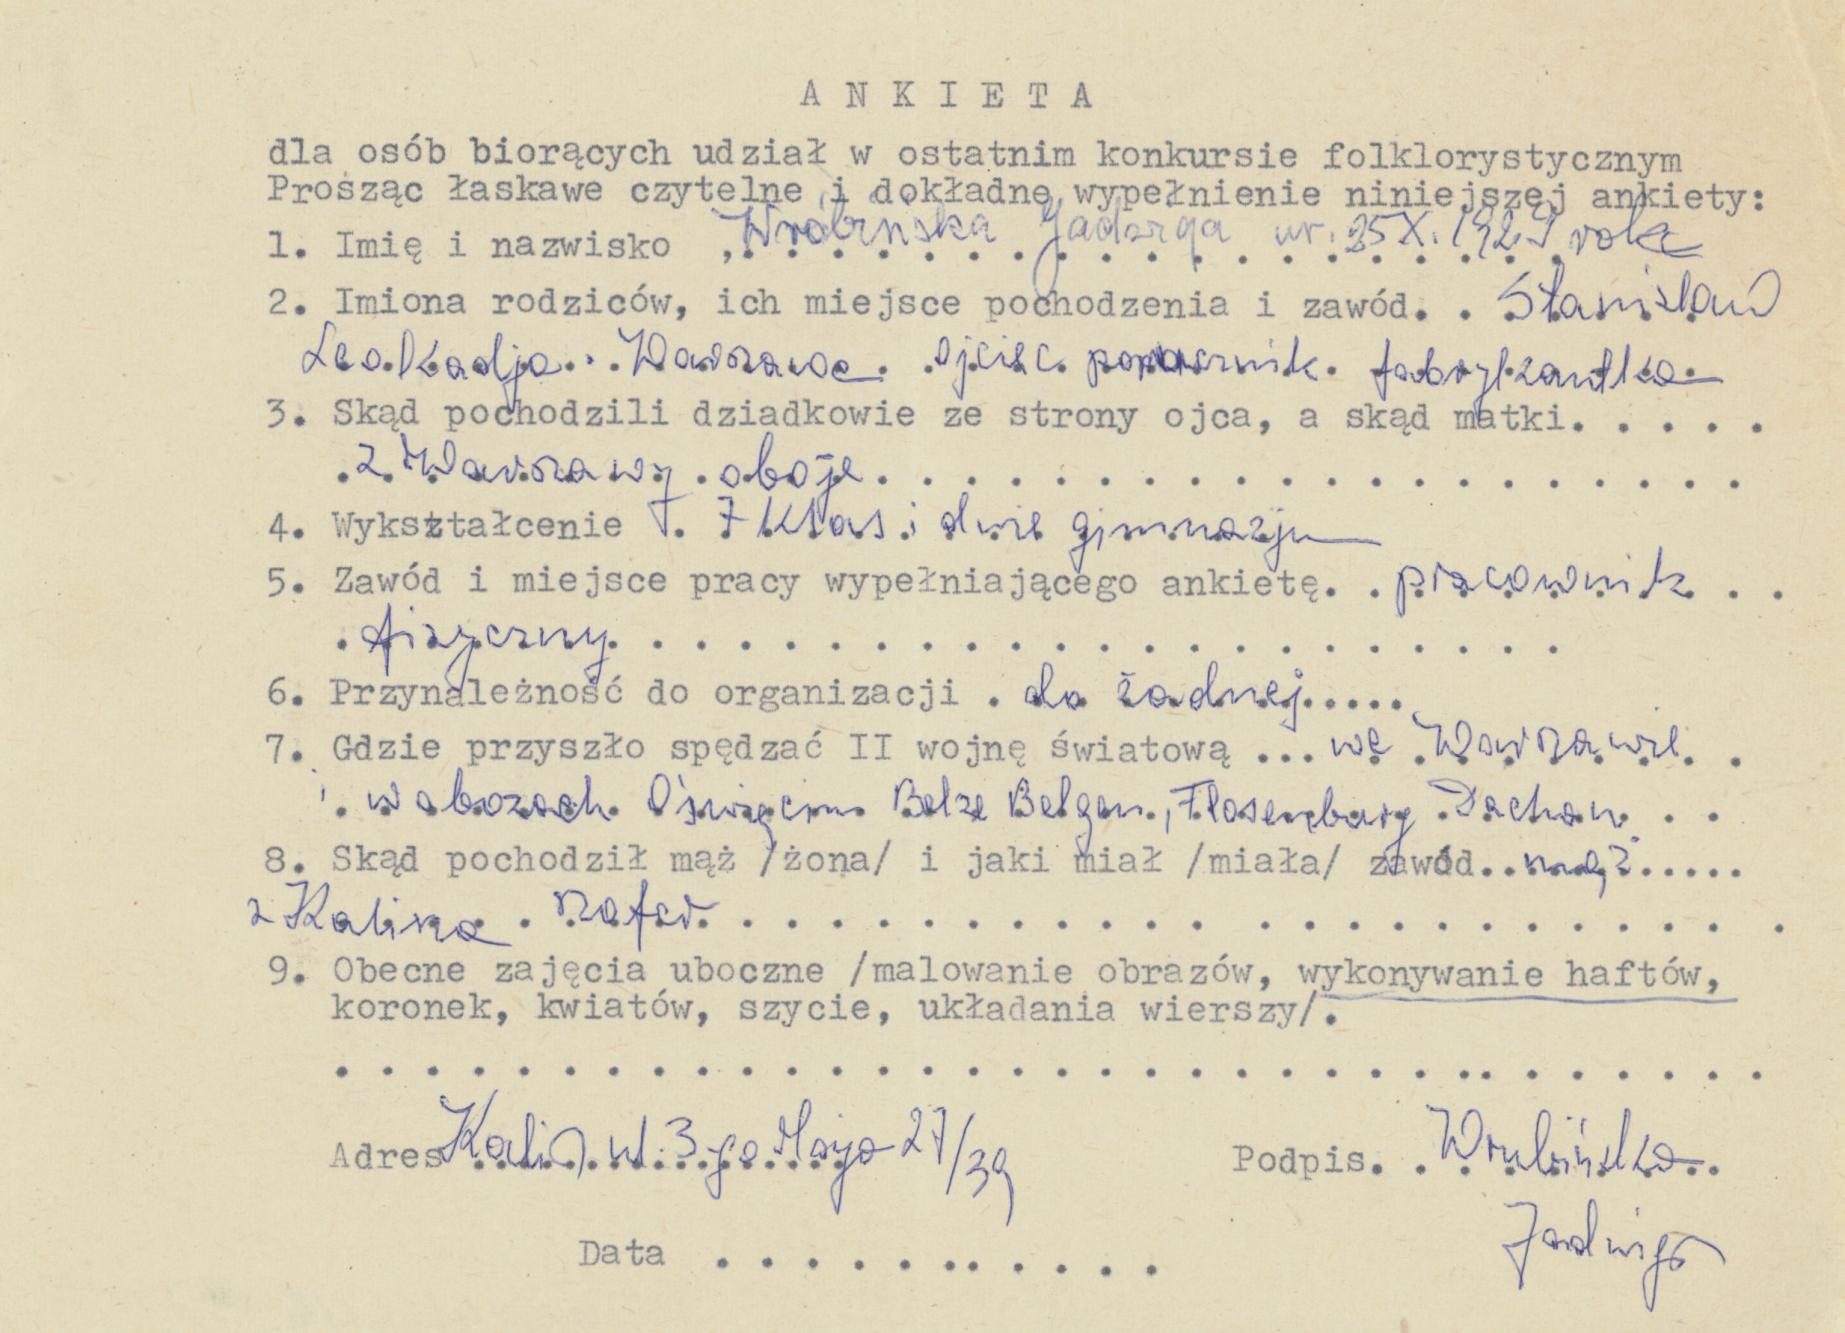 A N K I E T A
dla osób biorących udział w ostatnim konkursie folklorystycznym
Prosząc łaskawe czytelne i dokładne wypełnienie niniejszej ankiety:
1. Imię i nazwisko Wróbińska Jadwiga ur. 25 X. 1929 roku
2. Imiona rodziców, ich miejsce pochodzenia i zawód. . Stanisław
Leokadja . . Warszawa . ojciec fabrykantka
3. Skąd pochodzili dziadkowie ze strony ojca, a skąd matki. . . . .
z Warszawy oboje
4. Wykształcenie 7 klas i dwie gimnazju
5. Zawód i miejsce pracy wypełniającego ankietę. . pracownik . .
fizyczny
6. Przynależność do organizacji . do żadnej.....
7. Gdzie przyszło spędzać II wojnę światową ... we Warszawie. .
i w obozach Oświęcim Belze Belgen, Flosenburg Dachau . .
8. Skąd pochodził mąż /żona/ i jaki miał /miała/ zawód..mąż.....
z Kalisza szofer
9. Obecne zajęcia uboczne /malowanie obrazów, wykonywanie haftów,
koronek, kwiatów, szycie, układania wierszy/.
Adres Kalisz ul. 3-go Maja 27/39 Podpis. . Wrubińska
Jadwiga
Data . . . . . . . . . . .